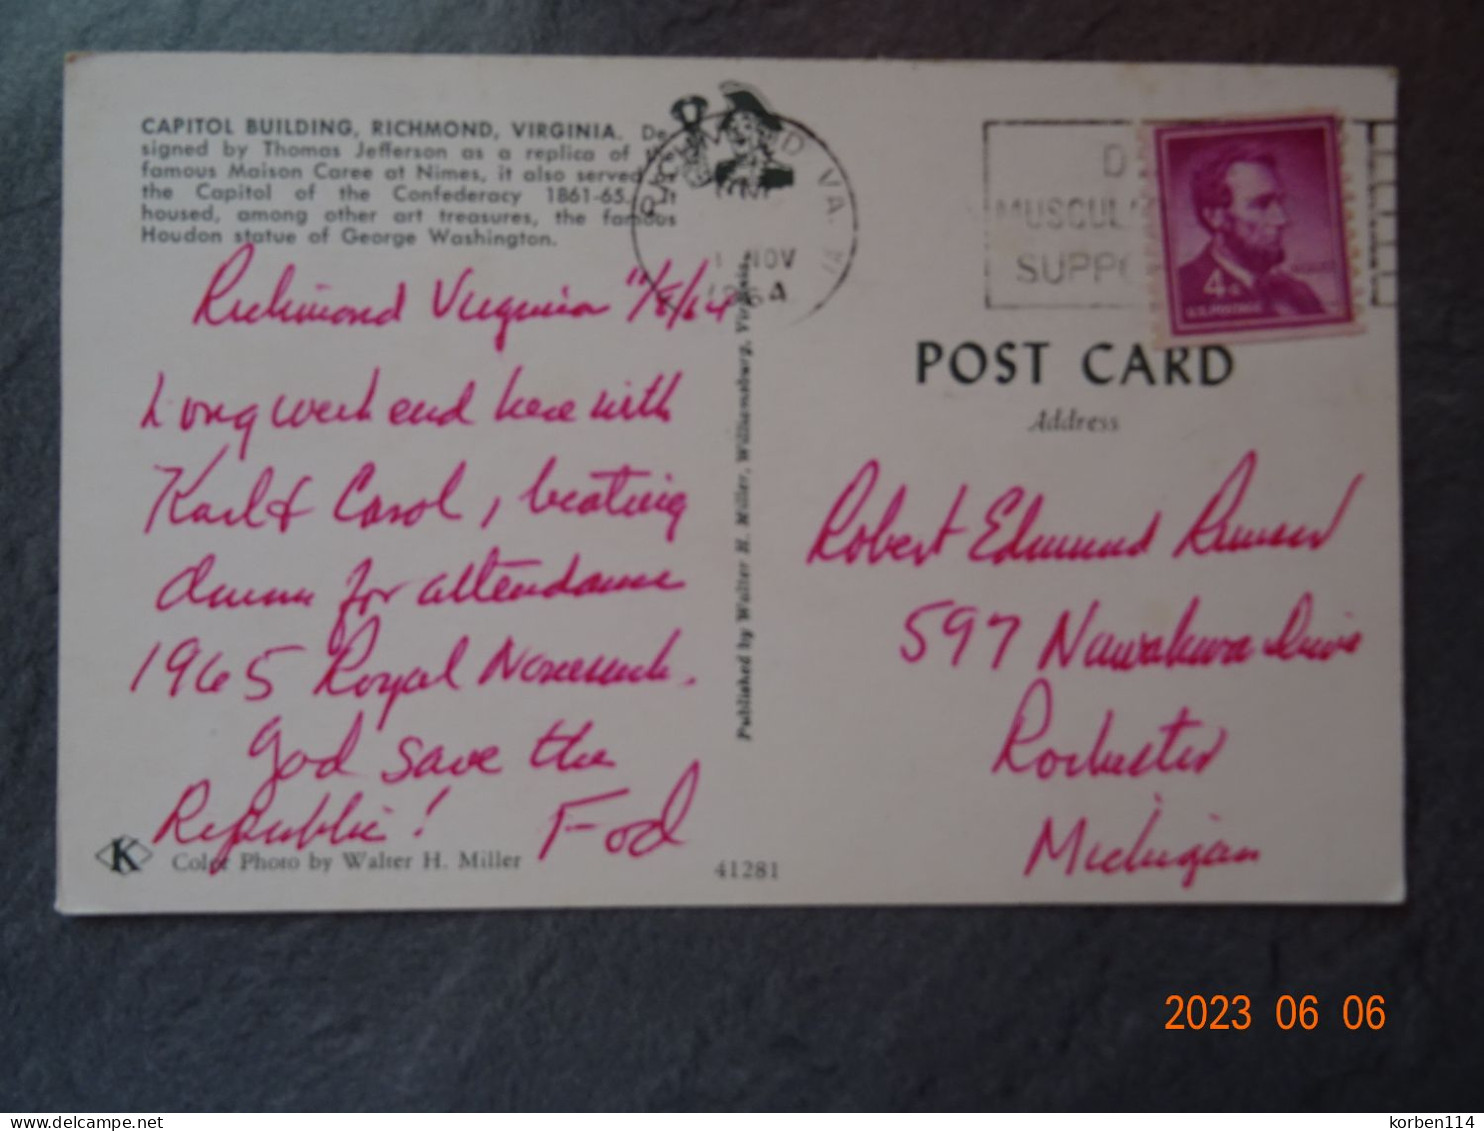 CAPITOL BUILDING, RICHMOND, VIRGINIA. De-
signed by Thomas Jefferson as a replica of the
famous Maison Caree at Nimes, it also served as
the Capitol of the Confederacy 1861-65. It
housed, among other art treasures, the famous
Houdon statue of George Washington.
Richmond Virginia 11/8/64
Long week end here with
Karl & Carol, beating
drum for attendance
1965 Royal Nonesuch.
God save the
Republic! Fod
Color Photo by Walter H. Miller
K
41281
Published by Walter H. Miller, Williamsburg, Virginia.
RICHMOND VA.
NOV
1964
MUSCUL
SUPPO
4¢
U.S. POSTAGE
POST CARD
Address
Robert Edmund
597 Nawakwa Drive
Rochester
Michigan
2023 06 06
delcampe.net
korben114